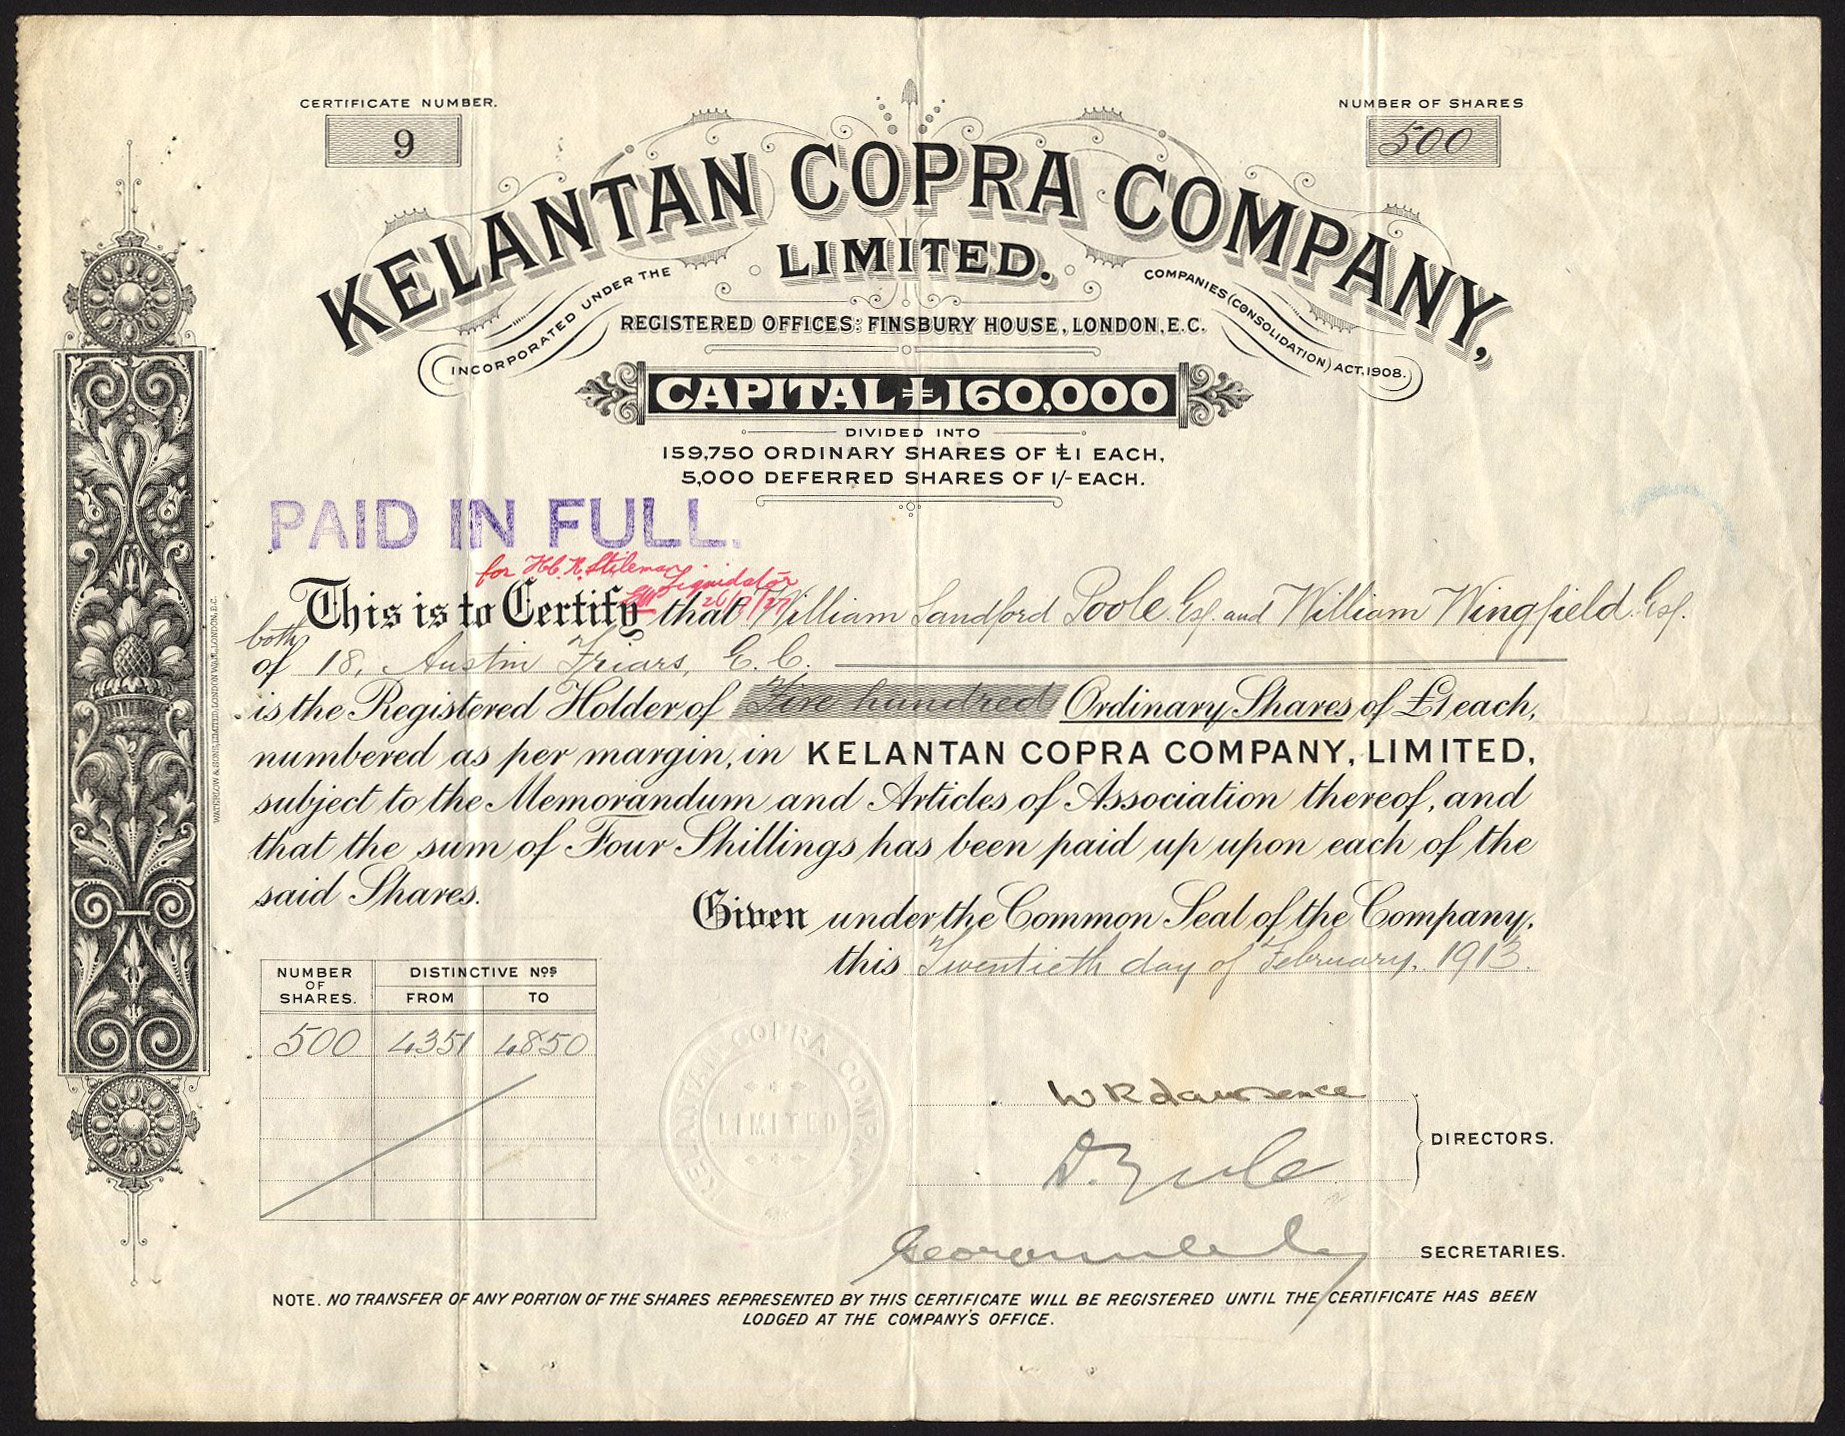 CERTIFICATE NUMBER.
9
NUMBER OF SHARES
500
KELANTAN COPRA COMPANY,
LIMITED.
INCORPORATED UNDER THE COMPANIES (CONSOLIDATION) ACT, 1908.
REGISTERED OFFICES: FINSBURY HOUSE, LONDON, E.C.
CAPITAL £160,000
DIVIDED INTO
159,750 ORDINARY SHARES OF £1 EACH,
5,000 DEFERRED SHARES OF 1/- EACH.
PAID IN FULL.
for H. R. Stileman
Liquidator
26/9/27
This is to Certify that William Sandford Poole Esq. and William Wingfield Esq.
both
of 18, Austin Friars, E.C.
is the Registered Holder of Five hundred Ordinary Shares of £1 each,
numbered as per margin, in KELANTAN COPRA COMPANY, LIMITED,
subject to the Memorandum and Articles of Association thereof, and
that the sum of Four Shillings has been paid up upon each of the
said Shares.
Given under the Common Seal of the Company,
this Twentieth day of February, 1913.
NUMBER OF SHARES.
DISTINCTIVE NOS
FROM
TO
500 4351 4850
KELANTAN COPRA COMPANY
LIMITED
W R Lawrence
D. Yule
DIRECTORS.
SECRETARIES.
NOTE. NO TRANSFER OF ANY PORTION OF THE SHARES REPRESENTED BY THIS CERTIFICATE WILL BE REGISTERED UNTIL THE CERTIFICATE HAS BEEN
LODGED AT THE COMPANY'S OFFICE.
WATERLOW & SONS, LIMITED, LONDON WALL, LONDON, E.C.